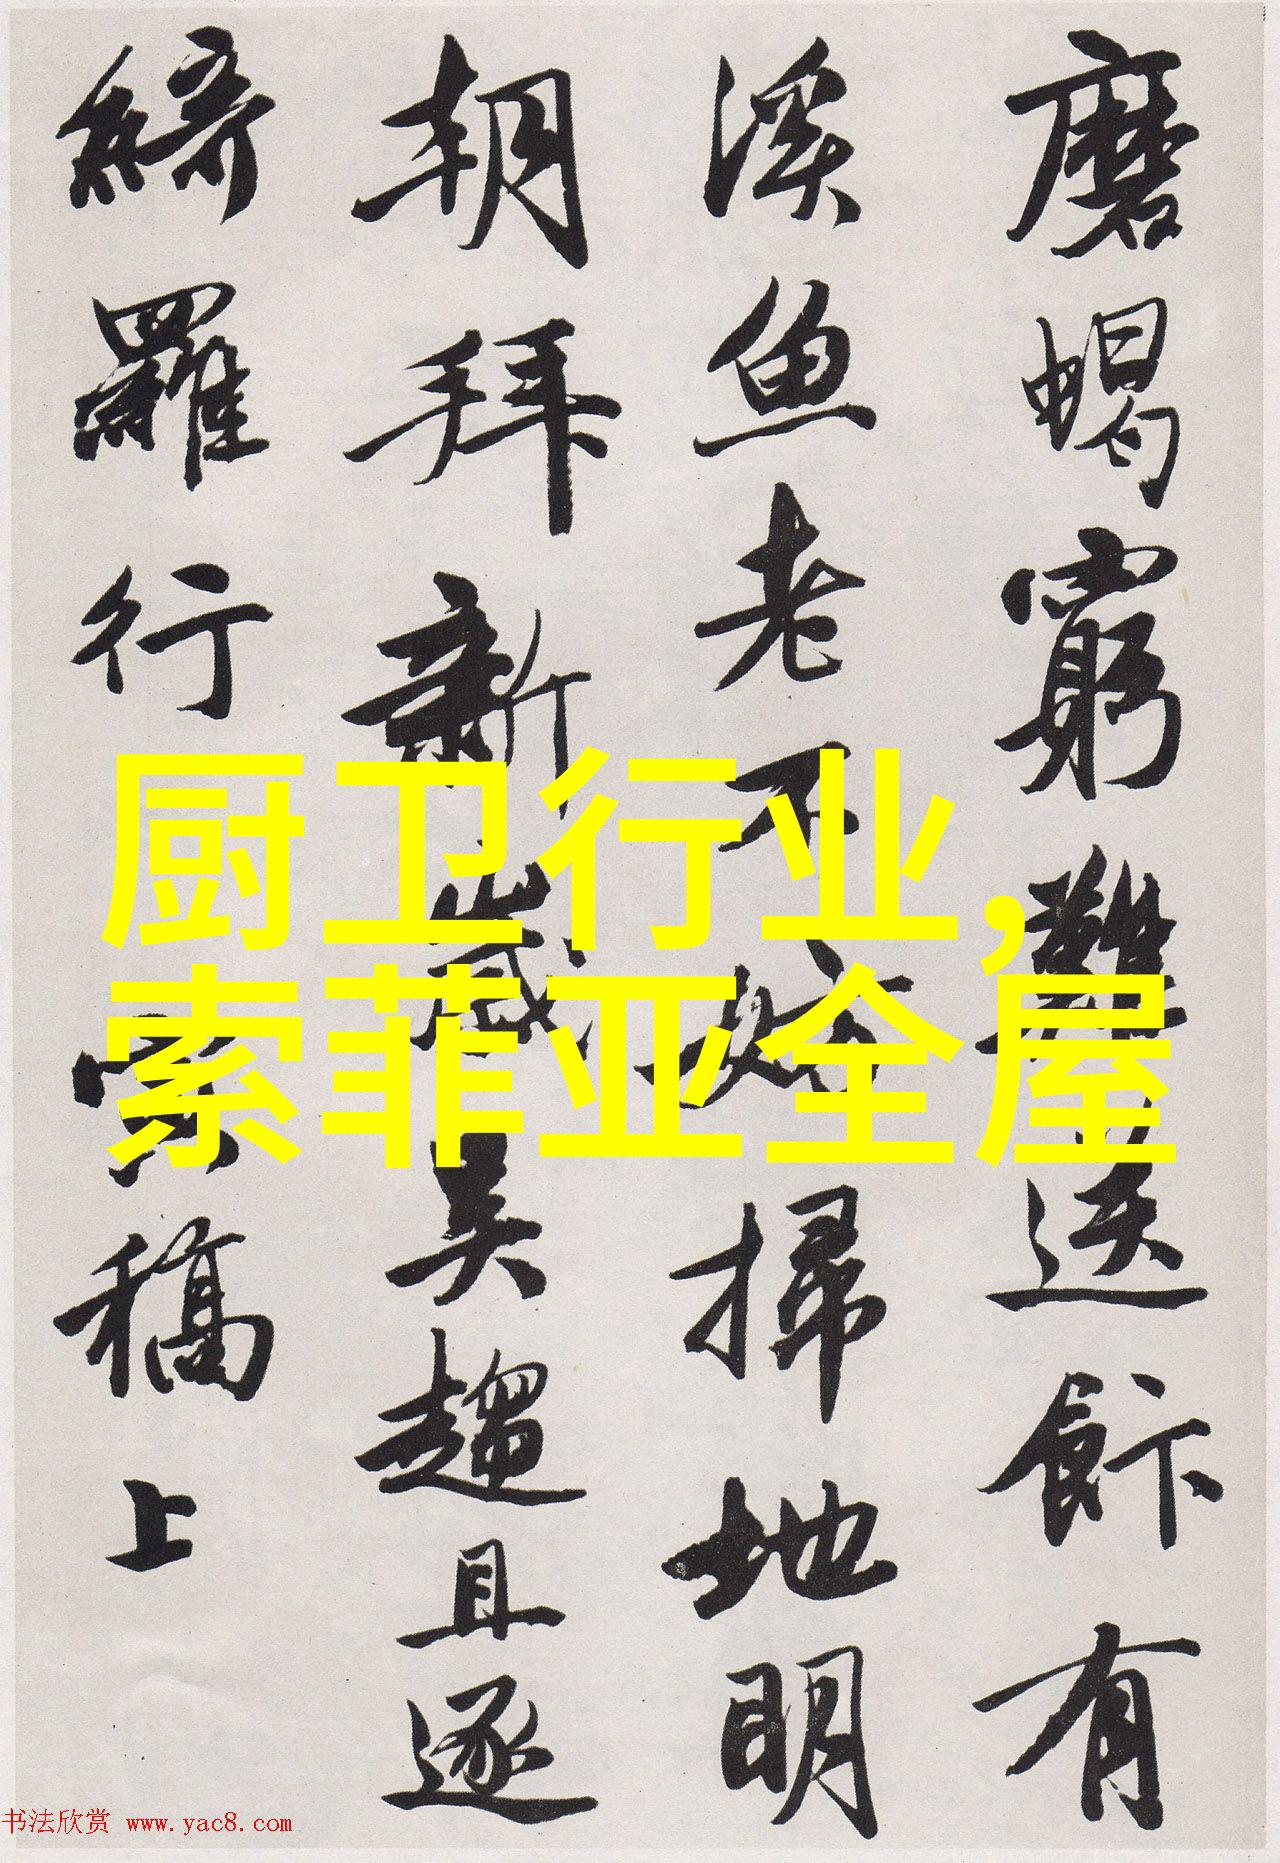 磨蝎窮難送飰有
溪鱼老不妨掃地明
朝拜新歲吳趨且逐
綺羅行稿上
厨卫行业,
索菲亚全屋
书法欣赏 www.yac8.com